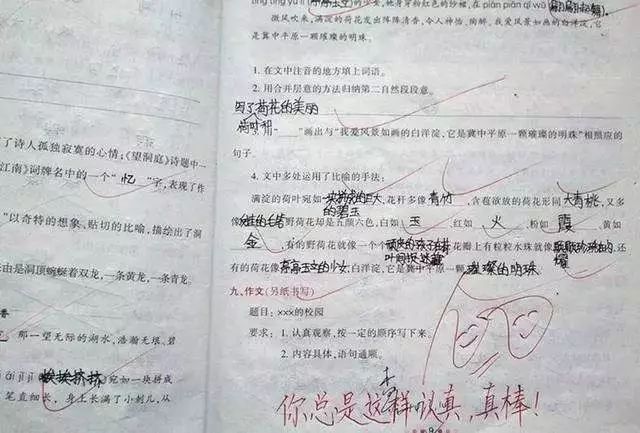 了诗人孤独寂寞的心情;《望洞庭》诗题中一
江南》词牌名中的一个“忆”字,表现了作
“以奇特的想象、贴切的比喻,描绘出了洞
由是洞顶蜿蜒着双龙,一条黄龙,一条青龙。
那一望无际的湖水,浩瀚无垠、碧
āi jǐ jǐ(挨挨挤挤)宛如一块拼成
笔直细长,身上长满了小刺儿,从
的少女,她身穿粉红色的纱帽,在piān piān qǐ wǔ
微风吹来,满淀的荷花发出阵阵清香,令人神怡、陶醉。我爱风景如画的白洋淀,它
是冀中平原一颗璀璨的明珠。
1. 在文中注音的地方填上词语。
2. 用合并层意的方法归纳第二自然段段意。
荷花的美丽
荷叶和
“﹏﹏”画出与“我爱风景如画的白洋淀,它是冀中平原一颗璀璨的明珠”相照应的
句子。
4. 文中多处运用了比喻的手法:
满淀的荷叶宛如一块拼成的巨大的碧玉,花秆多像青竹,含苞欲放的荷花形同大青桃,又多
像野荷花却是五颜六色,白如玉、红如火、粉如霞、黄如
金,有的野荷花就像一个个花瓣上有粒粒水珠就像还
有的荷花像亭亭玉立的少女,白洋淀,它是冀中平原一颗璀璨的明珠。
九、作文(另纸书写)
题目:xxx的校园
要求:1. 认真观察,按一定的顺序写下来。
2. 内容具体,语句通顺。
你总是这样认真,真棒!